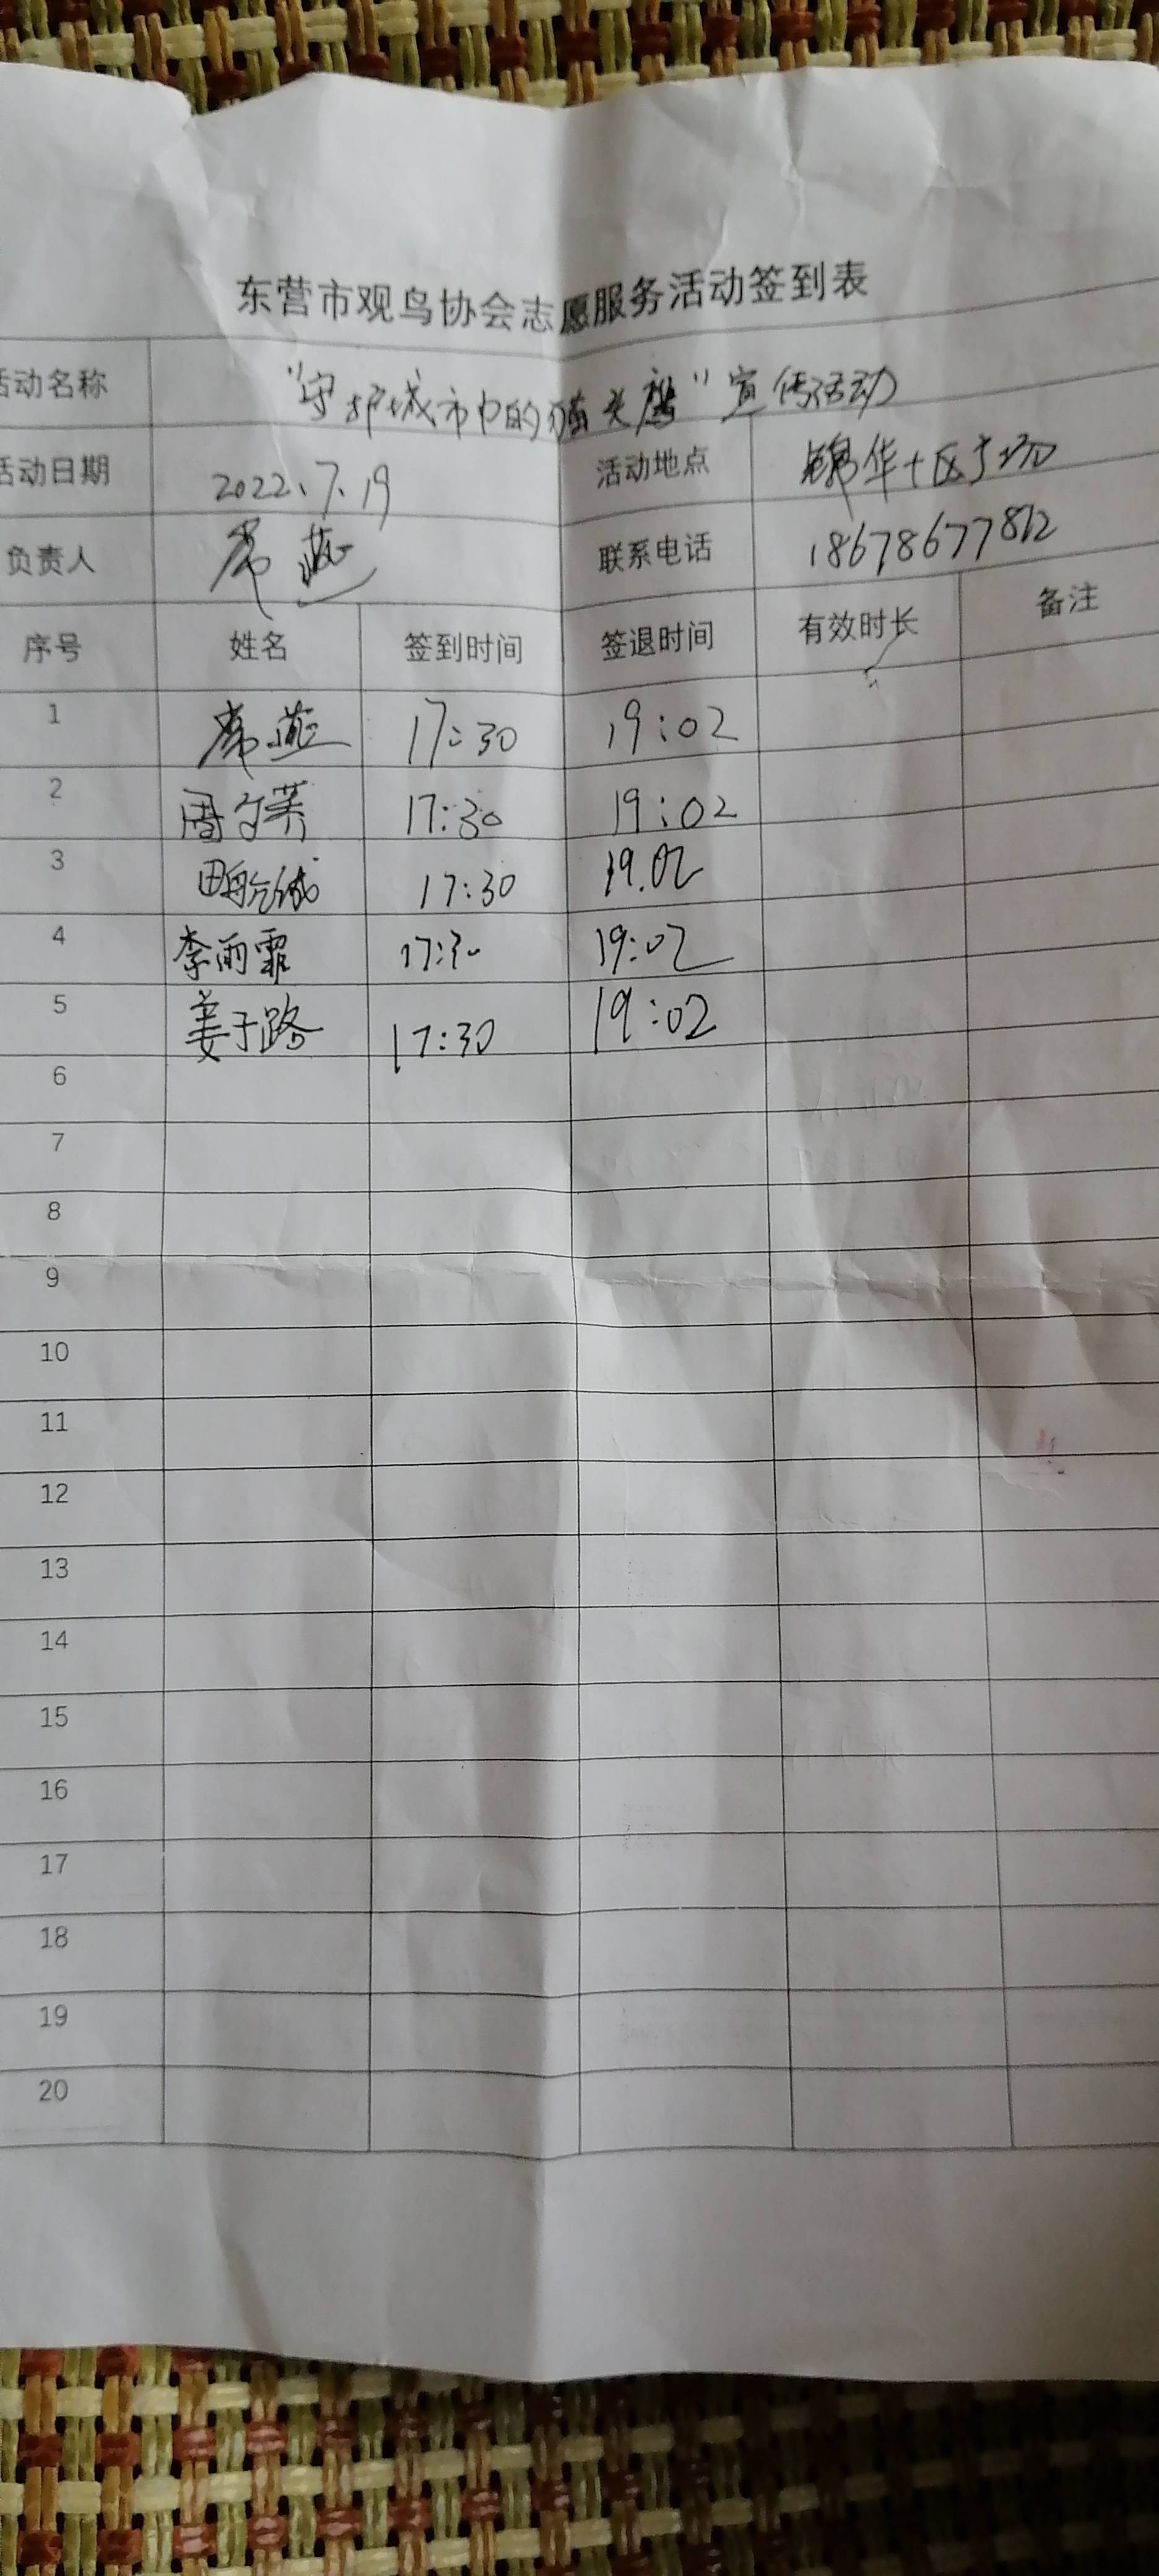 东营市观鸟协会志愿服务活动签到表
活动名称 "守护城市中的猫头鹰"宣传活动
活动日期 2022.7.19 活动地点 锦华十区广场
负责人 常燕 联系电话 18678677812
序号 姓名 签到时间 签退时间 有效时长 备注
1 常燕 17:30 19:02
2 周 17:30 19:02
3 田 17:30 19.02
4 李雨霏 17:30 19:02
5 姜子路 17:30 19:02
6
7
8
9
10
11
12
13
14
15
16
17
18
19
20